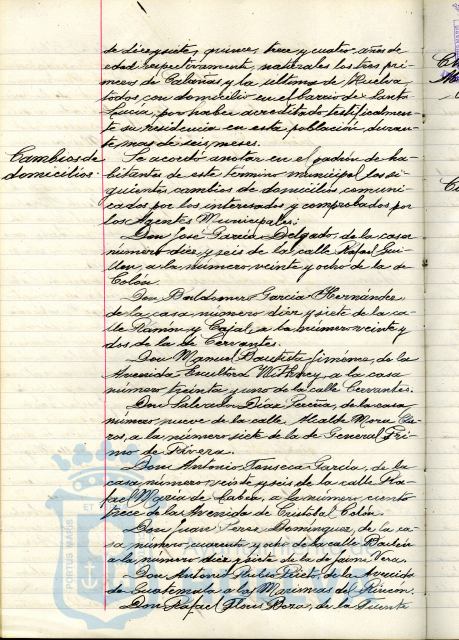 de diecisiete, quince, trece y cuatro años de
edad respectivamente, naturales los tres pri-
meros de Calañas y la última de Huelva,
todos con domicilio en el barrio de Santa
Lucía, por haber acreditado testificalmen-
te su residencia en esta población, duran-
te mas de seis meses.
Cambios de
domicilios.
Se acordó anotar en el padrón de ha-
bitantes de este término municipal los si-
guientes cambios de domicilios comuni-
cados por los interesados y comprobados por
los Agentes Municipales:
Don José García Delgado, de la casa
número diez y seis de la calle Rafael Gui-
llen, a la número veinte y ocho de la de
Colón.
Don Baldomero García Hernández
de la casa número diez y siete de la ca-
lle Ramón y Cajal, a la número veinte y
dos de la de Cervantes.
Don Manuel Bautista Jiménez, de la
Avenida Escultora Withney, a la casa
número treinta y uno de la calle Cervantes.
Don Salvador Díaz Pereña, de la casa
número nueve de la calle Alcalde Mora Cla-
ros, a la número siete de la de General Pri-
mo de Rivera.
Don Antonio Fonseca García, de la
casa número veinte y seis de la calle Ra-
fael María de Labra, a la número ciento
trece de la Avenida de Cristóbal Colón.
Don Juan Domínguez, de la ca-
sa número cuarenta y ocho de la calle Bailén
a la número diez y siete de la de Jaime Vera.
Don Antonio Rubio de la Avenida
de Guatemala a las Marismas del
Don Rafael Flores de la Fuente
PORTUS MARIS ET
Ayuntamiento de